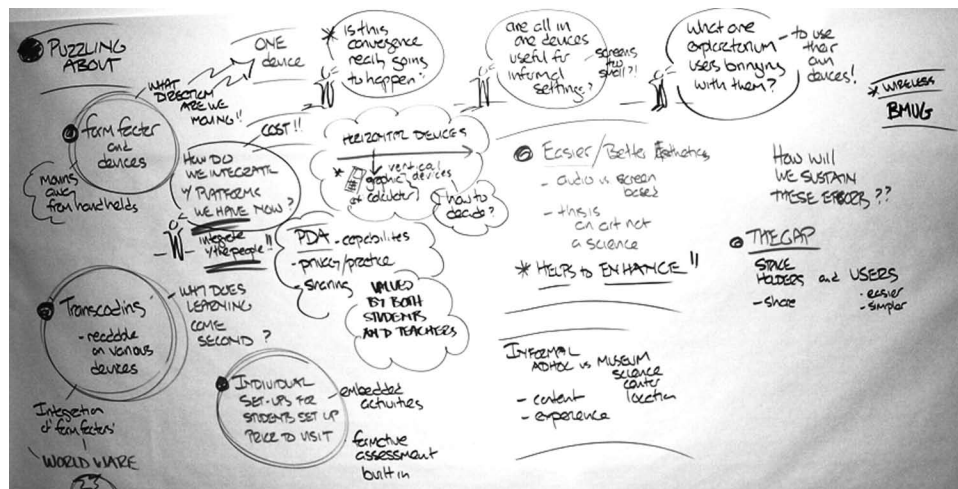 PUZZLING
ABOUT
ONE
device
WHAT
DIRECTION
ARE WE
MOVING!!
* is this
convergence
really going
to happen?
are all in
one devices
useful for
informal
settings?
screens
too
small?!
what are
exploratorium
users bringing
with them?
- to use
their
own
devices!
* WIRELESS
BMUG
form factor
and
devices
moving
away
from handhelds
COST!!
HOW DO
WE INTEGRATE
W/ PLATFORMS
WE HAVE NOW?
integrate
w/the people!!
HORIZONTAL DEVICES
* vertical
graphic devices
calculators
how to
decide?
PDA - capabilities
- privacy/practice
- sharing
VALUED
BY BOTH
STUDENTS
AND TEACHERS
Easier/Better Aesthetics
- audio vs screen
based
- this is
an art not
a science
* HELPS to ENHANCE!!
HOW WILL
WE SUSTAIN
THESE
THE GAP
STAKE
HOLDERS and USERS
- share
- easier
- simpler
Transcoding
- readable
on various
devices
- WHY DOES
LEARNING
COME
SECOND?
Integration
of "form factors"
"WORLD WARE"
INDIVIDUAL
SET-UPS FOR
STUDENTS SET UP
PRIOR TO VISIT
embedded
activities
formative
assessment
built in
INFORMAL
ADHOC vs MUSEUM
science
center
location
- content
- experience